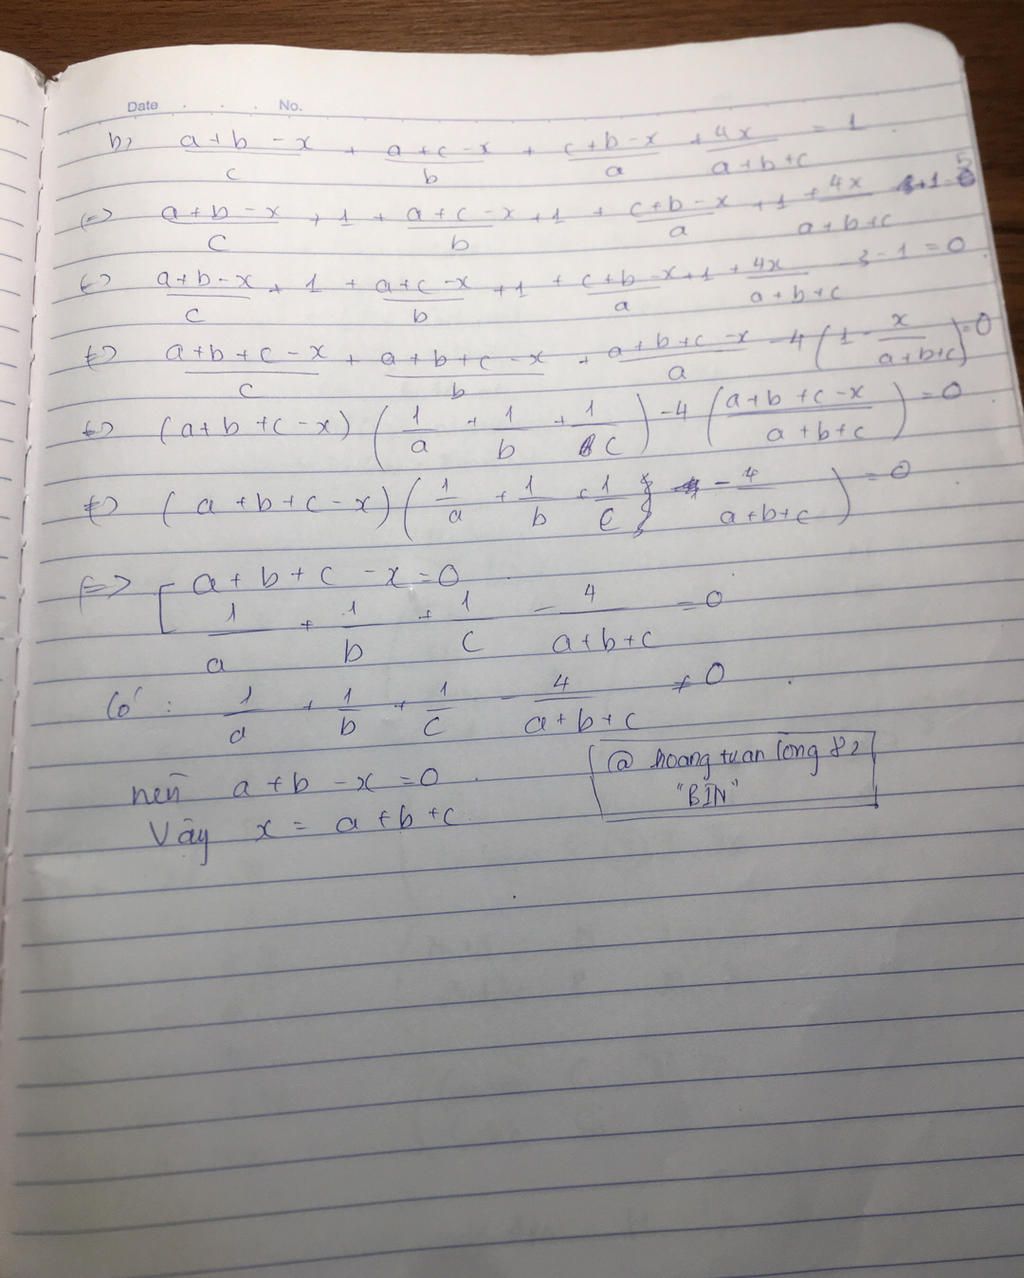 Date . . . No.
b, (a+b-x)/c + (a+c-x)/b + (c+b-x)/a + 4x/(a+b+c) = 1
(=) (a+b-x)/c + 1 + (a+c-x)/b + 1 + (c+b-x)/a + 1 + 4x/(a+b+c)
(=) (a+b-x)/c + 1 + (a+c-x)/b + 1 + (c+b-x)/a + 1 + 4x/(a+b+c) - 3 - 1 = 0
(=) (a+b+c-x)/c + (a+b+c-x)/b + (a+b+c-x)/a - 4(1 - x/(a+b+c)) = 0
(=) (a+b+c-x)(1/a + 1/b + 1/c) - 4((a+b+c-x)/(a+b+c)) = 0
(=) (a+b+c-x)(1/a + 1/b + 1/c - 4/(a+b+c)) = 0
(=> [ a+b+c-x=0
1/a + 1/b + 1/c - 4/(a+b+c) = 0
Có : 1/a + 1/b + 1/c - 4/(a+b+c) ≠ 0
nên a+b-x=0
Vậy x = a+b+c
@ hoang tuan long 82
"BIN"